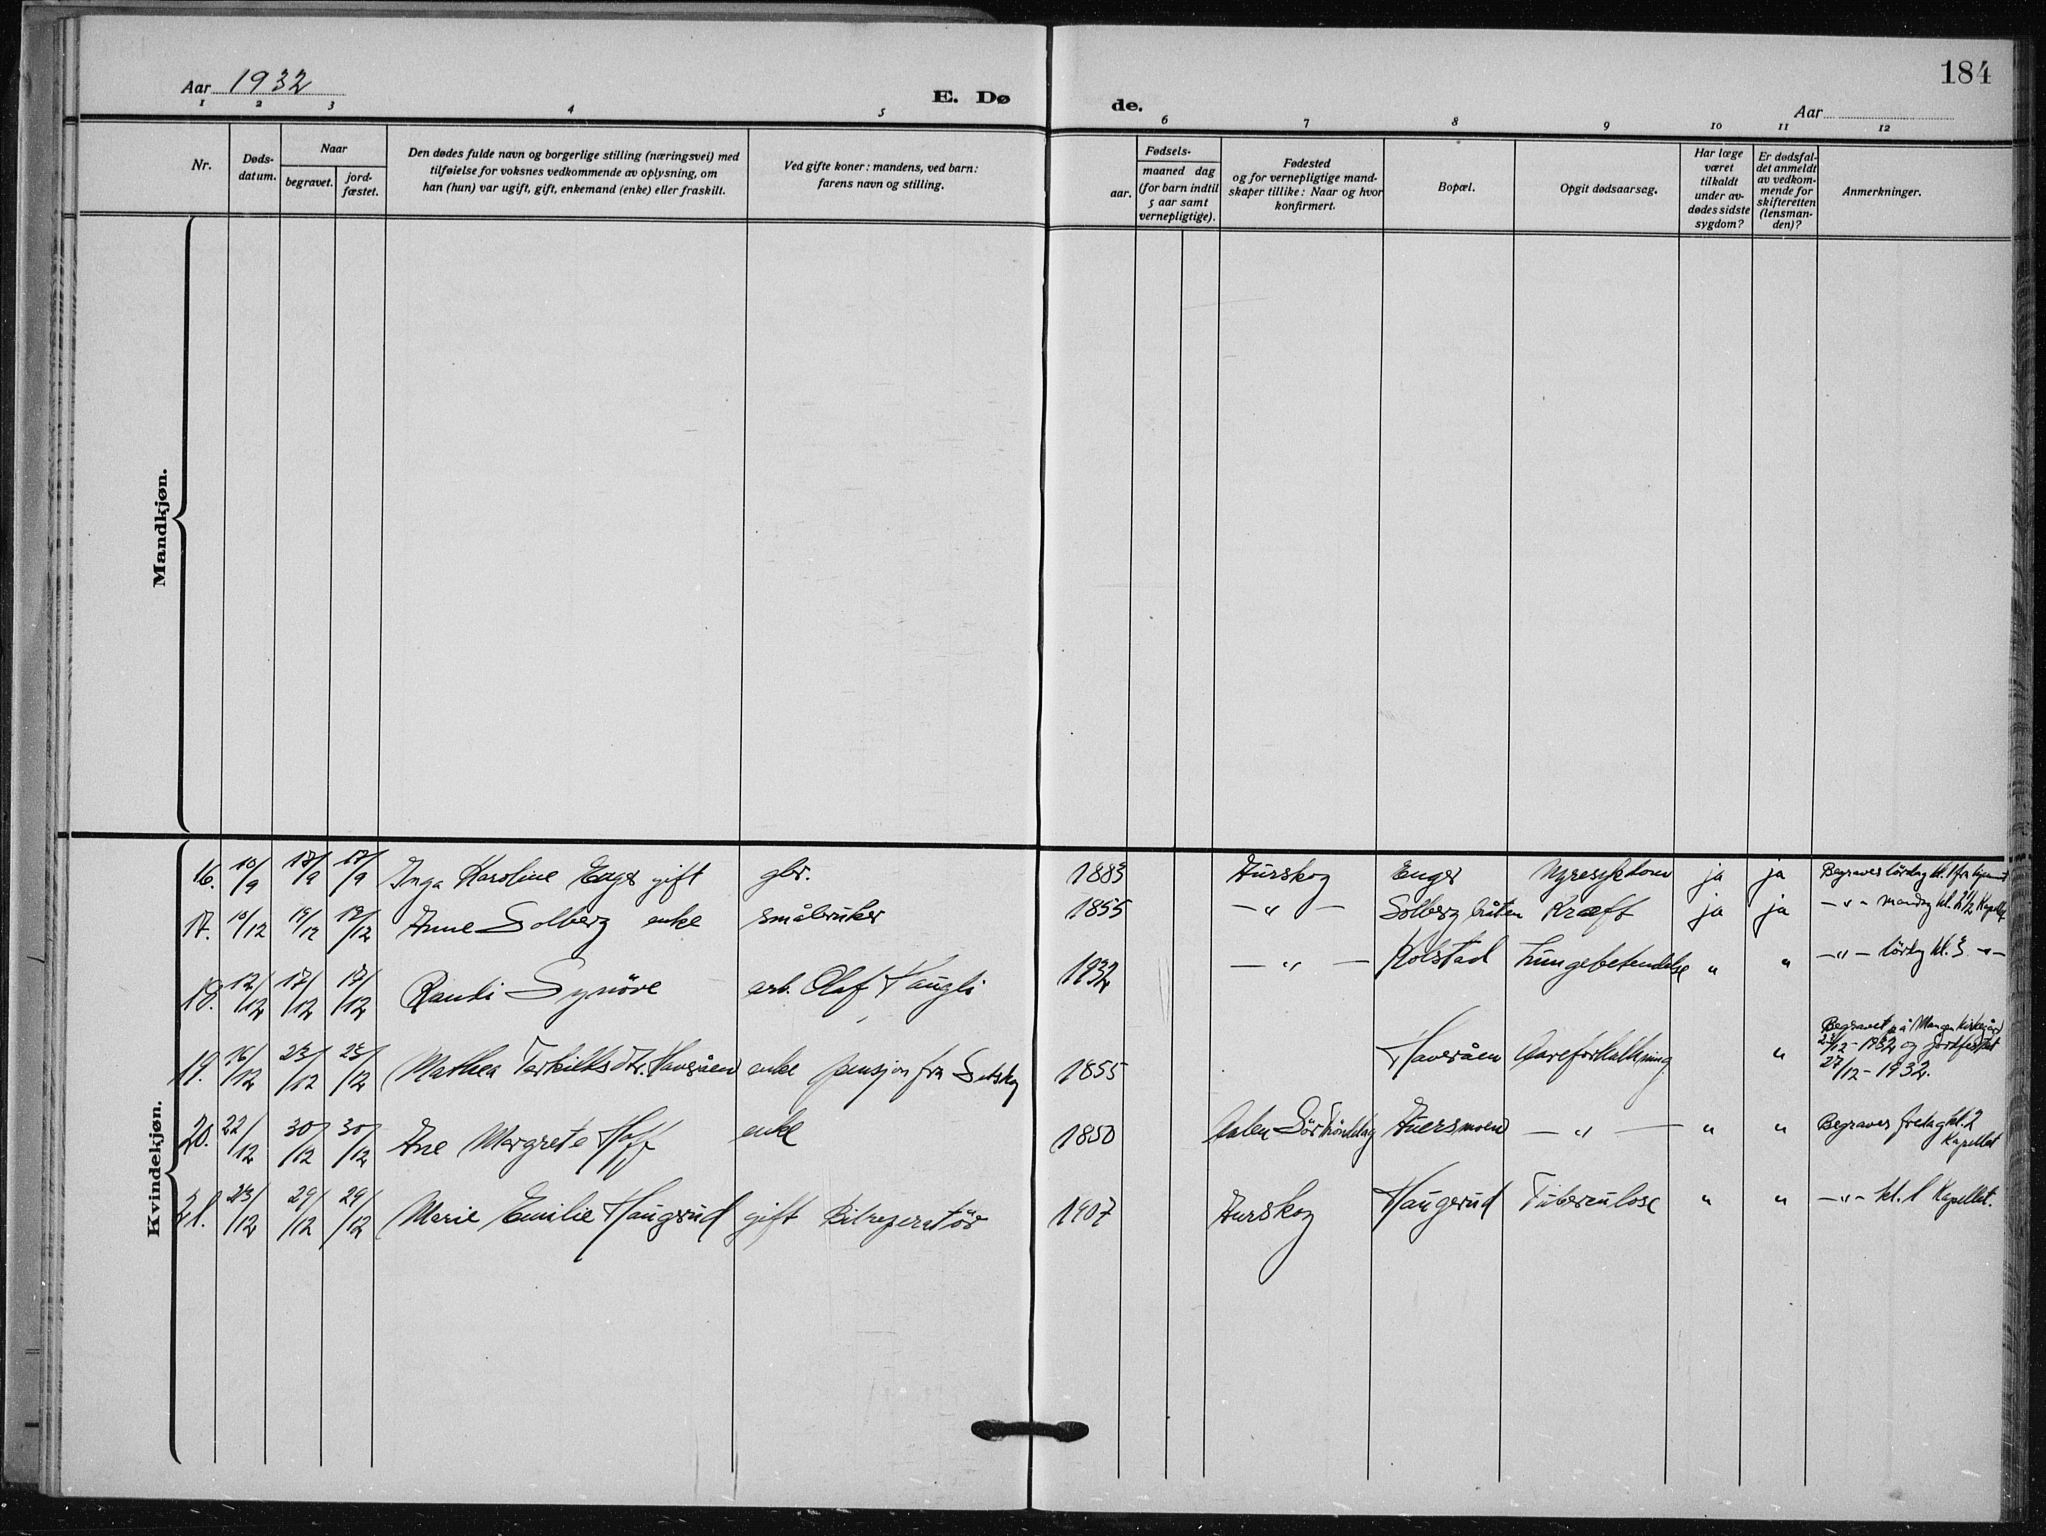 184
Aar 1932
E. Døde.
Aar
1 2 3 4 5 6 7 8 9 10 11 12
Nr.
Døds-
datum.
Naar
begravet.
jord-
fæstet.
Den dødes fulde navn og borgerlige stilling (næringsvei) med
tilføielse for voksnes vedkommende av oplysning, om
han (hun) var ugift, gift, enkemand (enke) eller fraskilt.
Ved gifte koner: mandens, ved barn:
farens navn og stilling.
Fødsels-
aar.
maaned dag
(for barn indtil
5 aar samt
vernepligtige).
Fødested
og for vernepligtige mand-
skaper tillike: Naar og hvor
konfirmert.
Bopæl.
Opgit dødsaarsag.
Har læge
været
tilkaldt
under av-
dødes sidste
sygdom?
Er dødsfal-
det anmeldt
av vedkom-
mende for
skifteretten
(lensman-
den)?
Anmerkninger.
Mandkjøn.
Kvindekjøn.
16. 10/9 17/9 17/9 Inga Karoline Enger gift gbr. 1883 Aurskog Enger ja ja Begraves lördag kl. 1 fra
17. 10/12 19/12 19/12 Anne Solberg enke småbruker 1855 —„— Solbergbråten Kræft ja ja —„— mandag kl. Kapellet
18. 12/12 17/12 17/12 Randi Synöve arb. Olaf Haugli 1932 —„— Kolstad Lungebetendelse „ „ —„— lördag kl. 3 —„—
19. 16/12 23/12 23/12 Mathea Terkildsdtr. Haveråen enke pensjon fra Setskog 1855 Haveråen Aareforkalkning „ Begravet på Mangen kirkegård
23/12 - 1932 og jordfæstet
27/12 - 1932.
20. 22/12 30/12 30/12 Ane Margrete Hoff enke 1850 Aalen Sör Tröndelag Auersmoen —„— „ „ Begraves fredag kl. 2
Kapellet
21. 23/12 29/12 29/12 Marie Emilie Haugerud gift Bilreperatör 1907 Aurskog Haugerud Tuberculose „ „ —„— kl. 1 Kapellet.